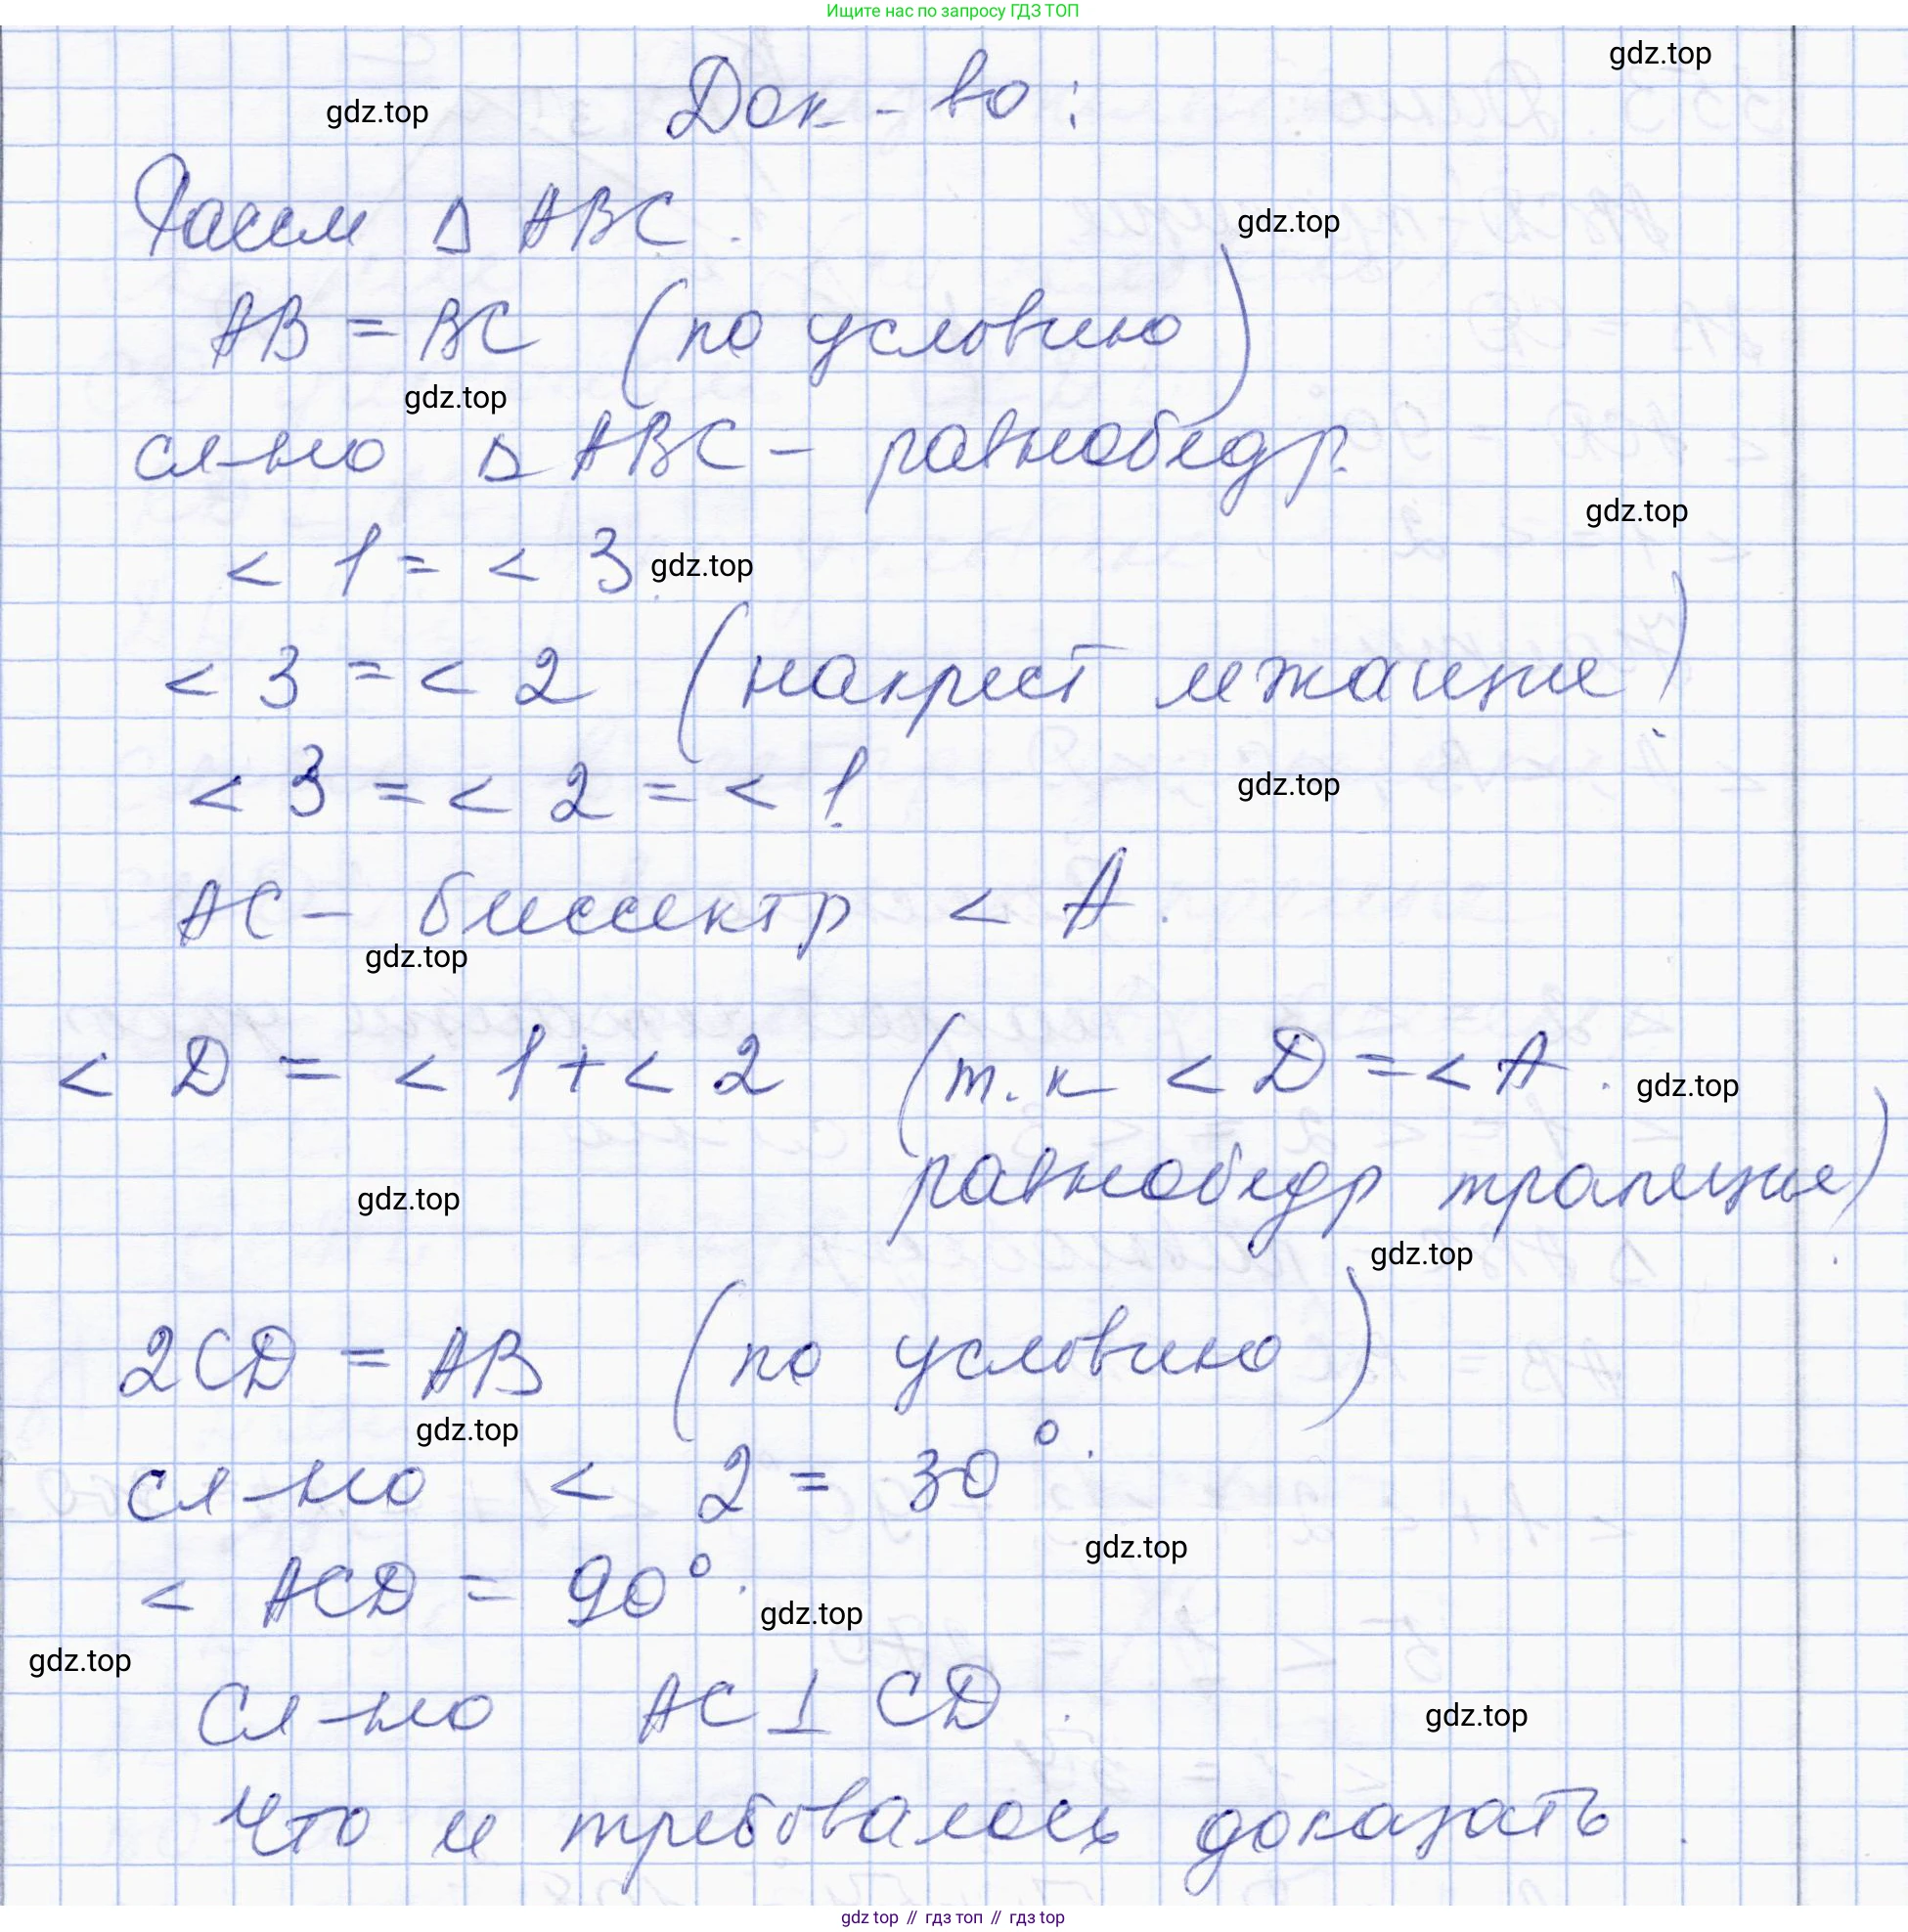 Ищите нас по запросу ГДЗ ТОП
gdz.top
Док-во:
gdz.top
Рассм Δ ABC.
gdz.top
AB = BC (по условию)
gdz.top
сл-но Δ ABC - равнобедр.
gdz.top
< 1 = < 3
gdz.top
< 3 = < 2 (накрест лежащие)
< 3 = < 2 = < 1.
gdz.top
AC - биссектр < A.
gdz.top
< D = < 1 + < 2 (т.к < D = < A.
gdz.top
равнобедр трапеция)
gdz.top
gdz.top
2CD = AB (по условию)
gdz.top
сл-но < 2 = 30°.
gdz.top
< ACD = 90°.
gdz.top
gdz.top
Сл-но AC ⊥ CD.
gdz.top
Что и требовалось доказать.
gdz top // гдз топ // гдз top